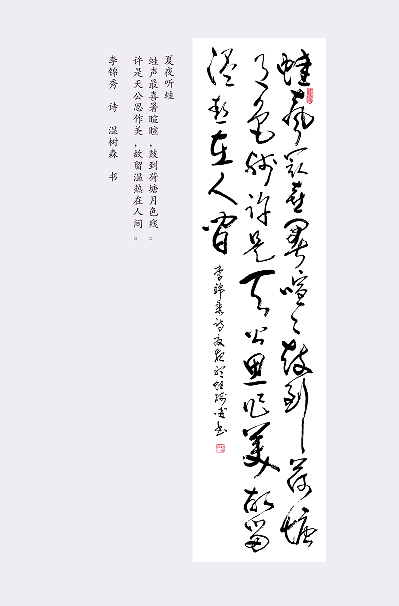 蛙声最喜暑喧喧鼓到荷塘
月色残许是天公思作美故留
温热在人间
李锦秀诗夏夜听蛙树森书
夏夜听蛙
蛙声最喜暑喧喧，鼓到荷塘月色残。
许是天公思作美，故留温热在人间。
李锦秀 诗 温树森 书